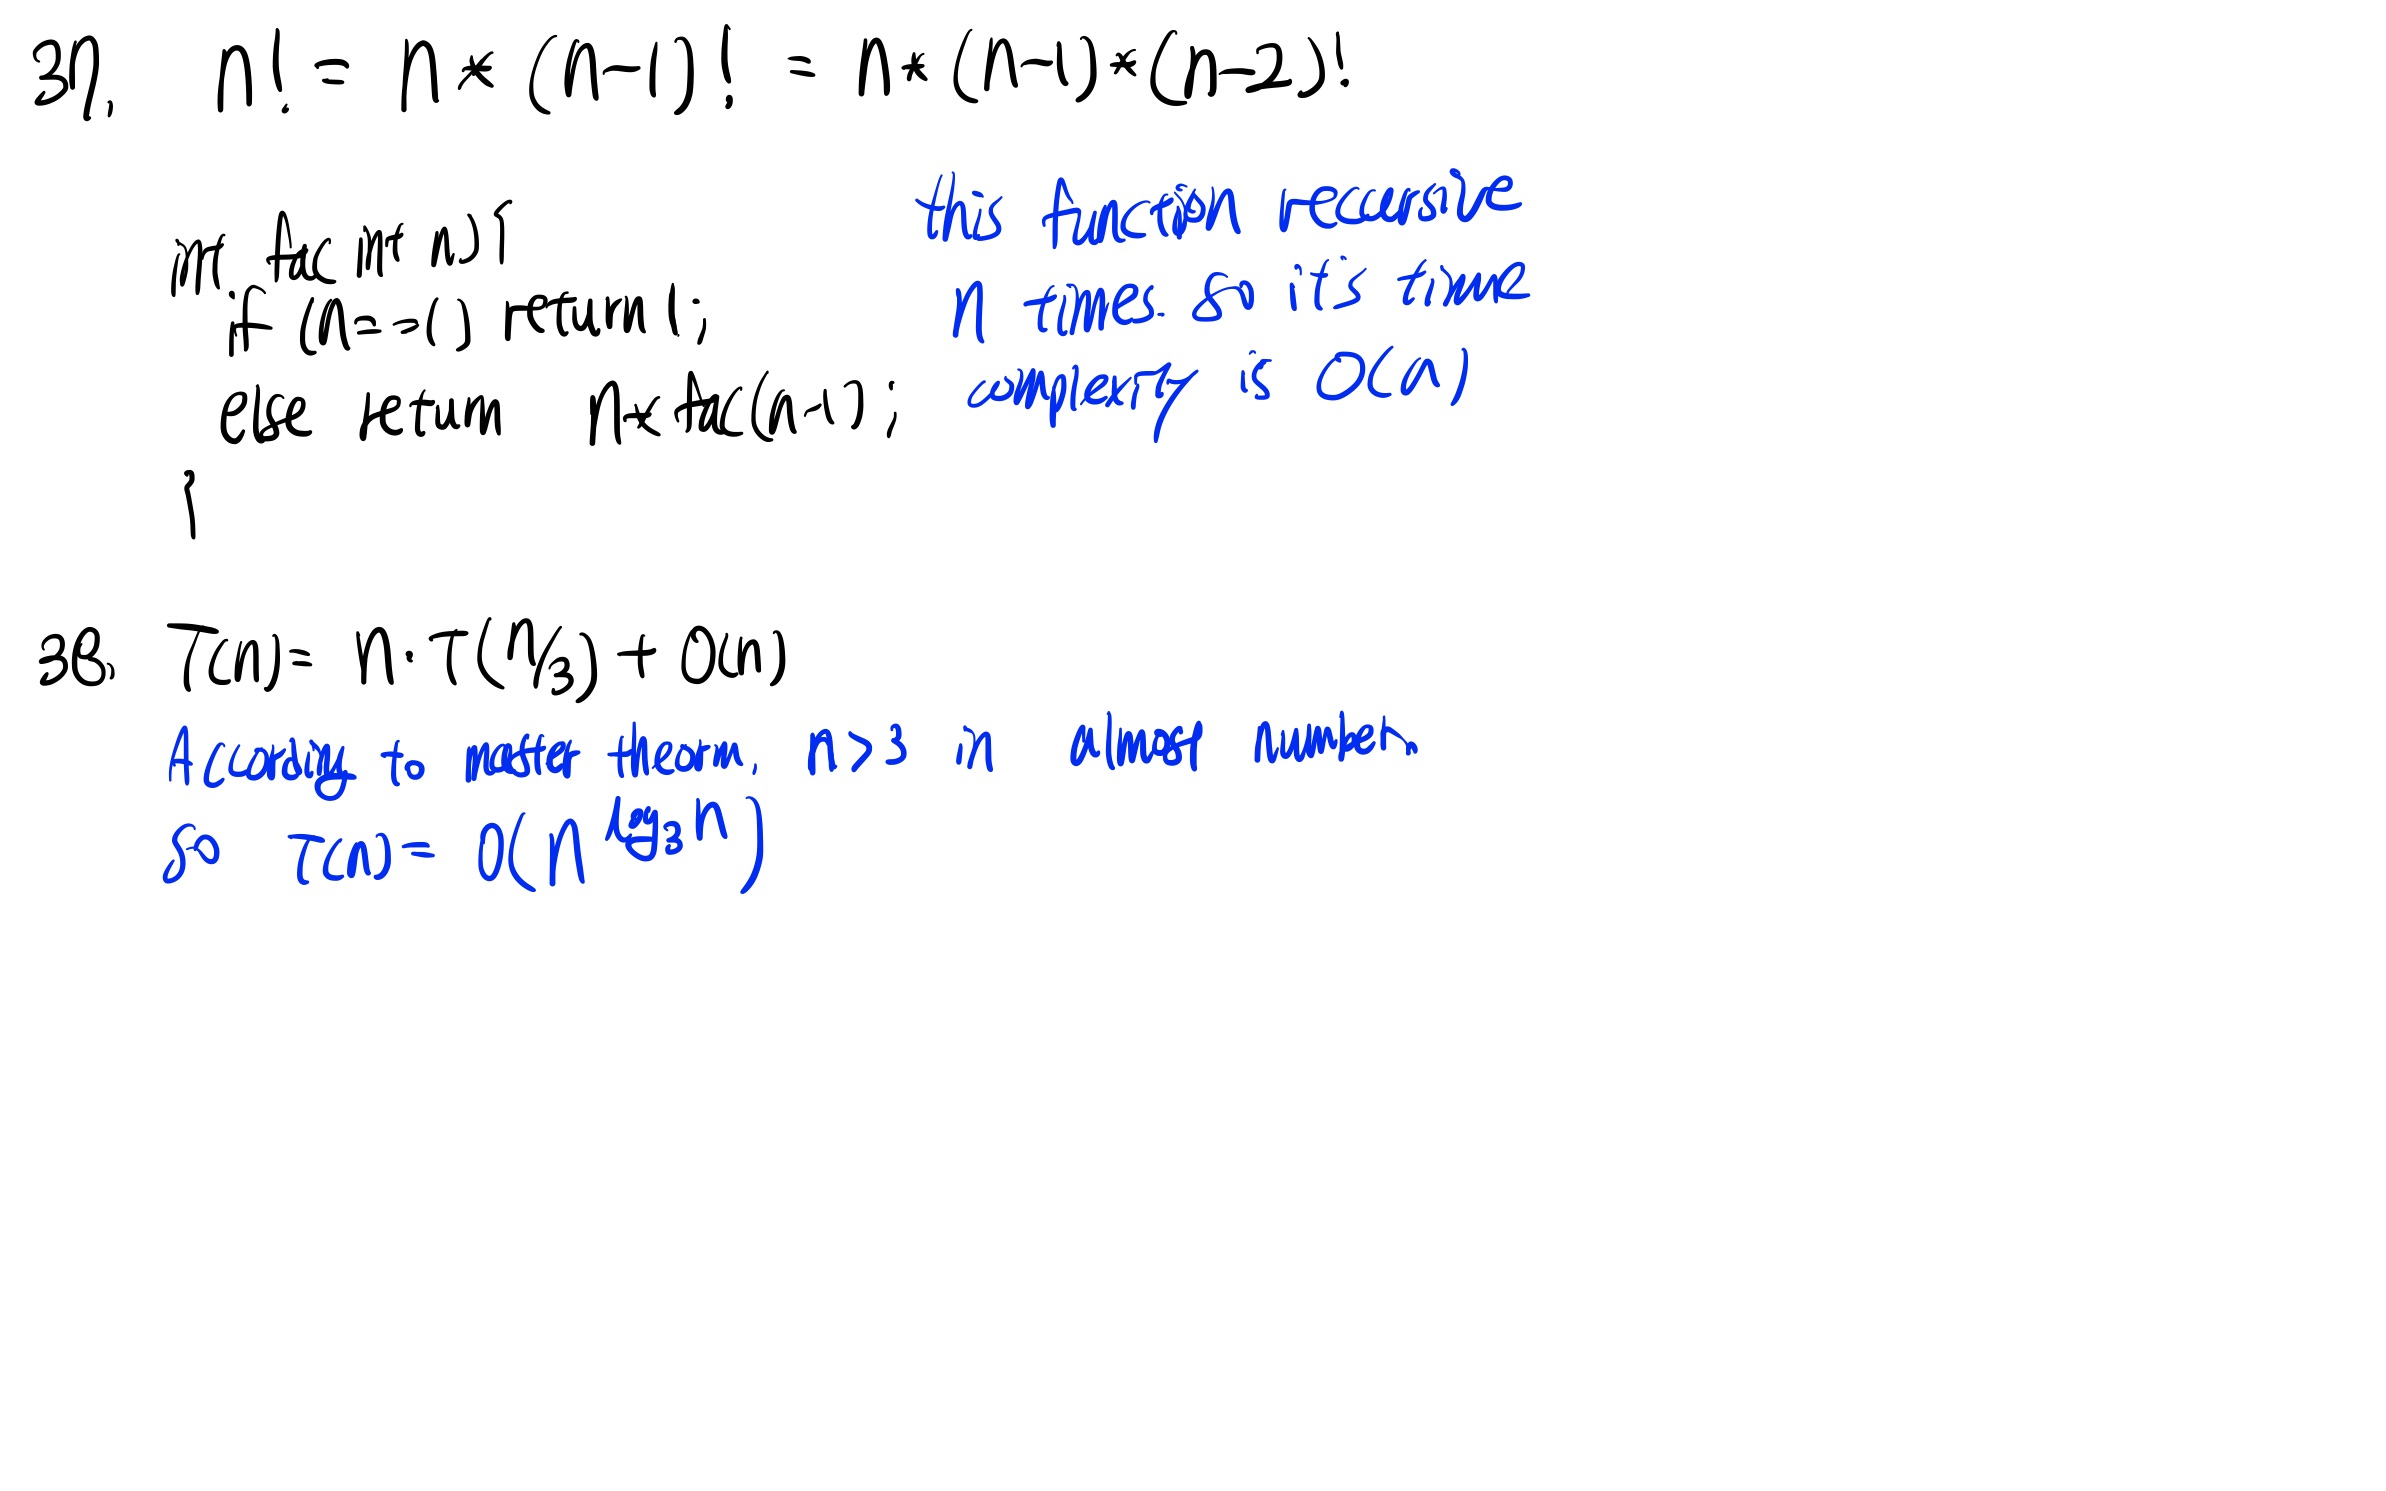 37. n! = n * (n-1)! = n * (n-1) * (n-2)!
int fac int n) {
if (n==1) return 1;
else return n * fac(n-1);
}
this function recursive
n times. so it's time
complexity is O(n)
38. T(n) = n·T(n/3) + O(n)
According to master theorem, n>3 in almost number,
So T(n) = O(n^log₃n)